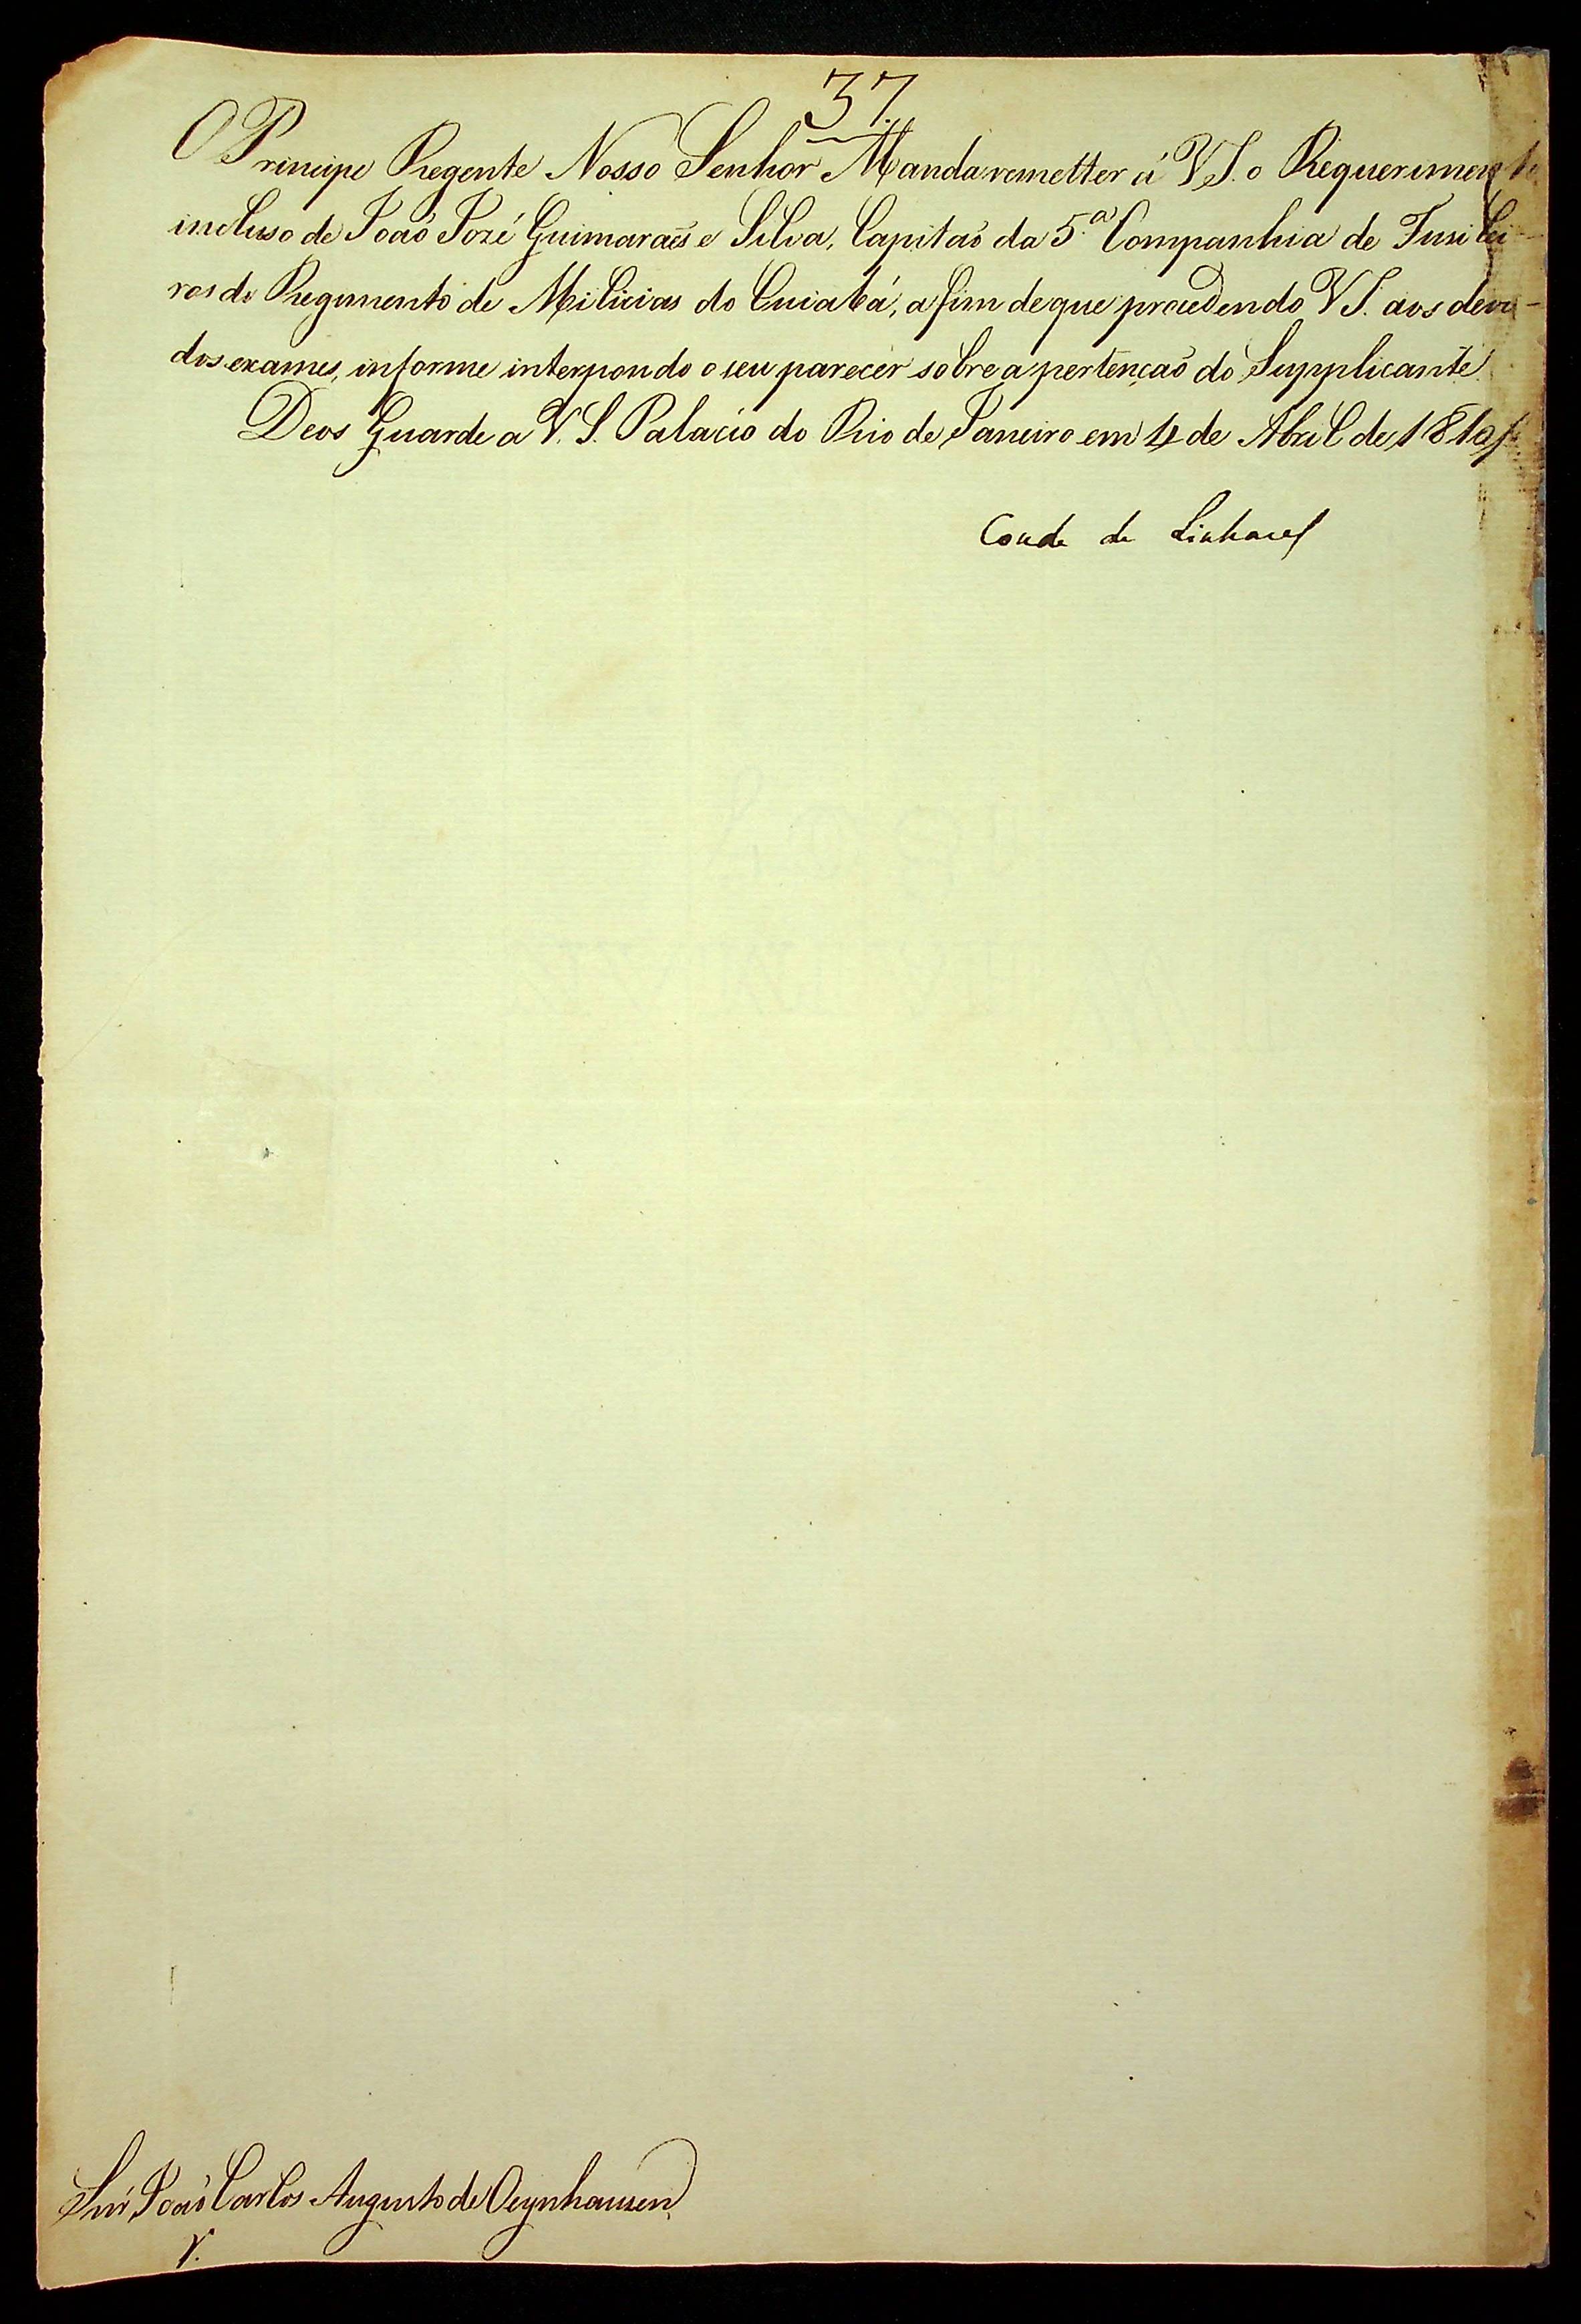 37.
O Principe Regente Nosso Senhor Manda remetter á V.S. o Requerimento
incluso de Joaõ Jozé Guimaraẽs e Silva, Capitaõ da 5.ª Companhia de Fusilei-
ros do Regimento de Milicias do Cuiabá, a fim de que procedendo V.S. aos devi-
dos exames, informe interpondo o seu parecer sobre a pertençaõ do Supplicante.
Deos Guarde a V.S. Palacio do Rio de Janeiro em 4 de Abril de 1810
Conde de Linhares
Snr. Joaõ Carlos Augusto de Oeynhausen